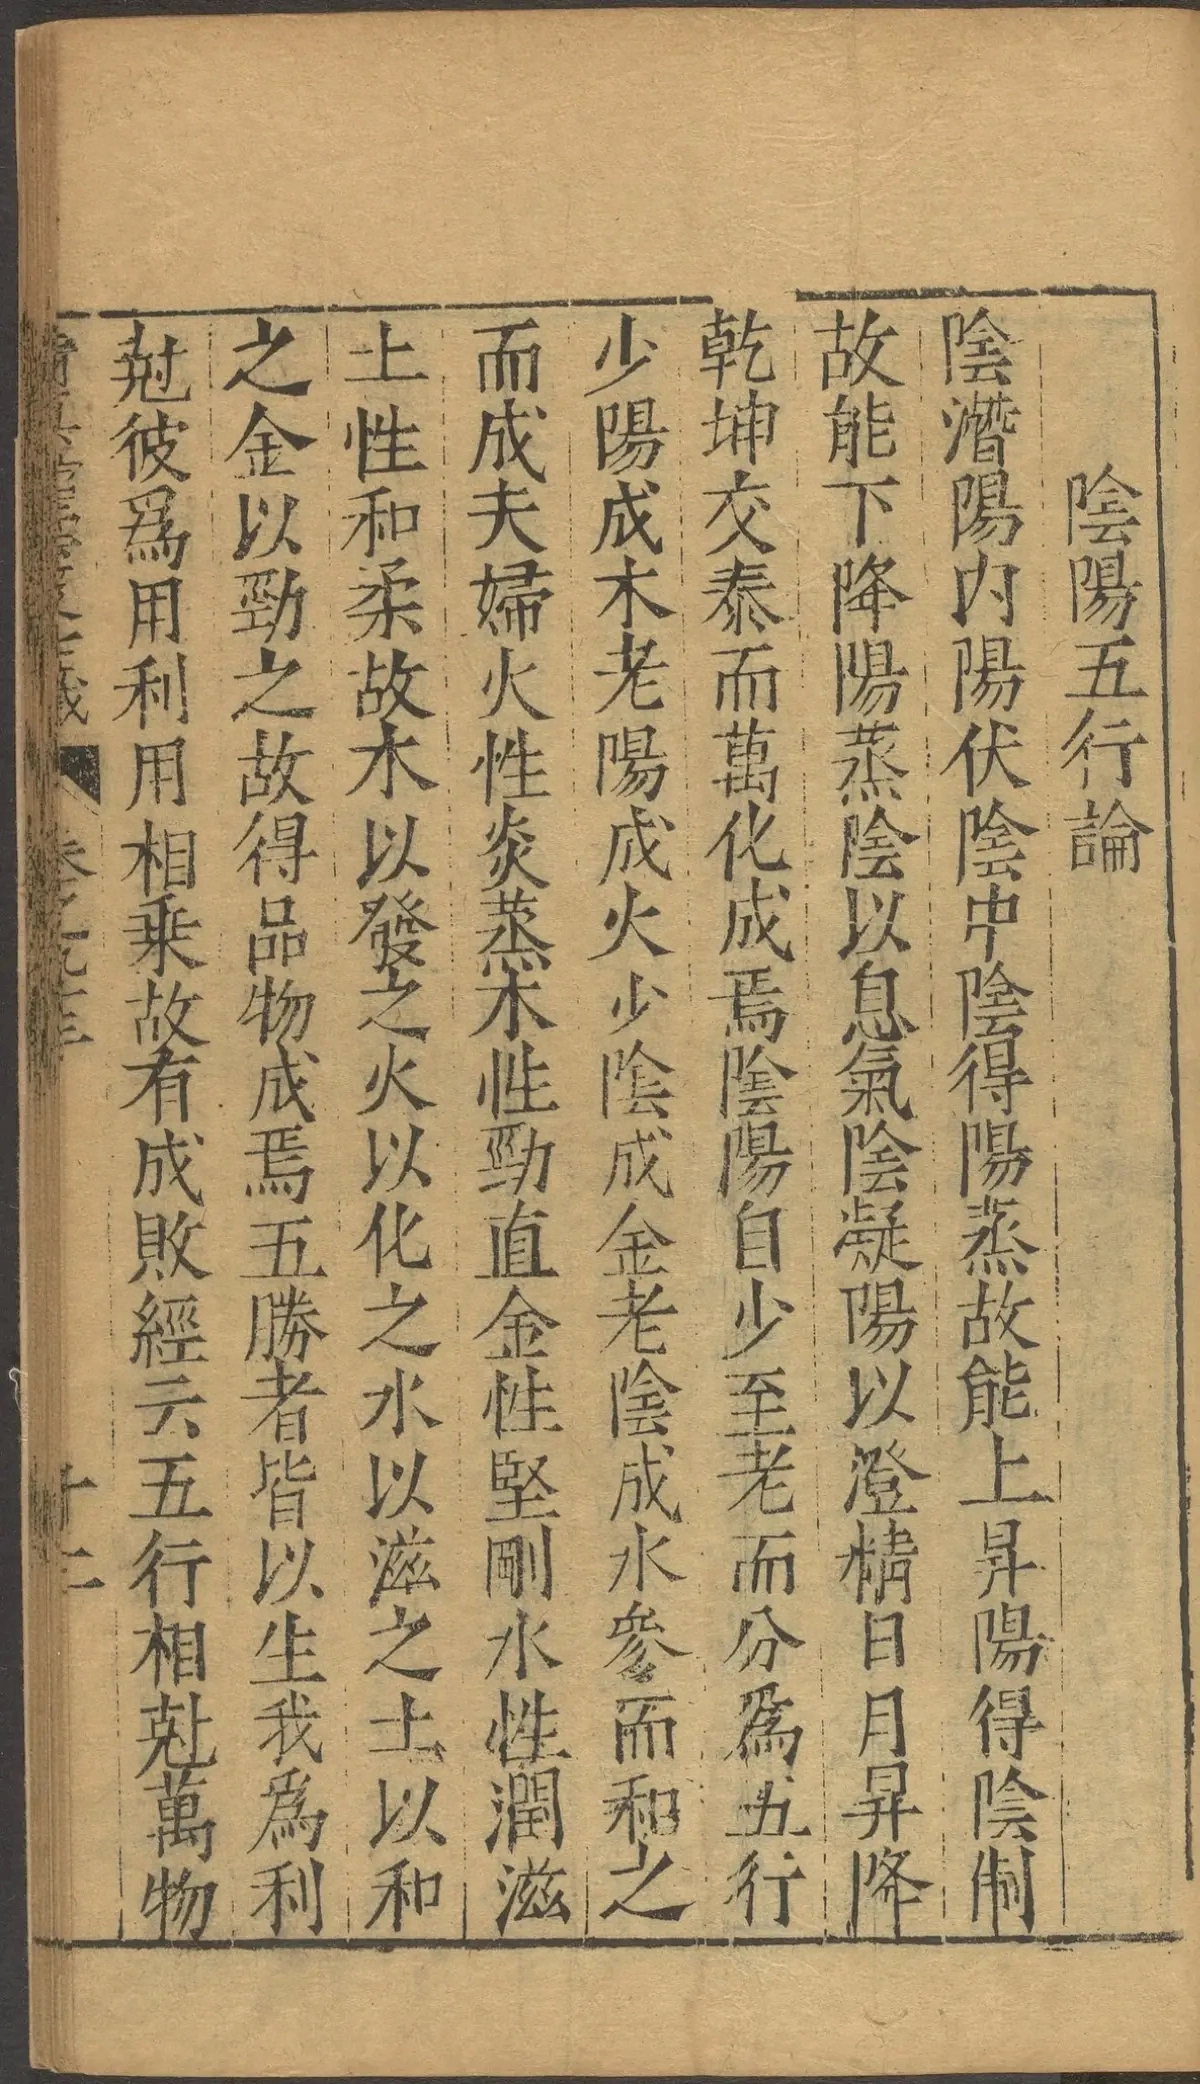 陰陽五行論
陰潛陽內陽伏陰中陰得陽蒸故能上昇陽得陰制
故能下降陽蒸陰以息氣陰凝陽以澄精日月昇降
乾坤交泰而萬化成焉陰陽自少至老而分爲五行
少陽成木老陽成火少陰成金老陰成水參而和之
而成夫婦火性炎蒸木性勁直金性堅剛水性潤滋
土性和柔故木以發之火以化之水以滋之土以和
之金以勁之故得品物成焉五勝者皆以生我爲利
尅彼爲用利用相乗故有成敗經云五行相尅萬物
卷之九十三
十二